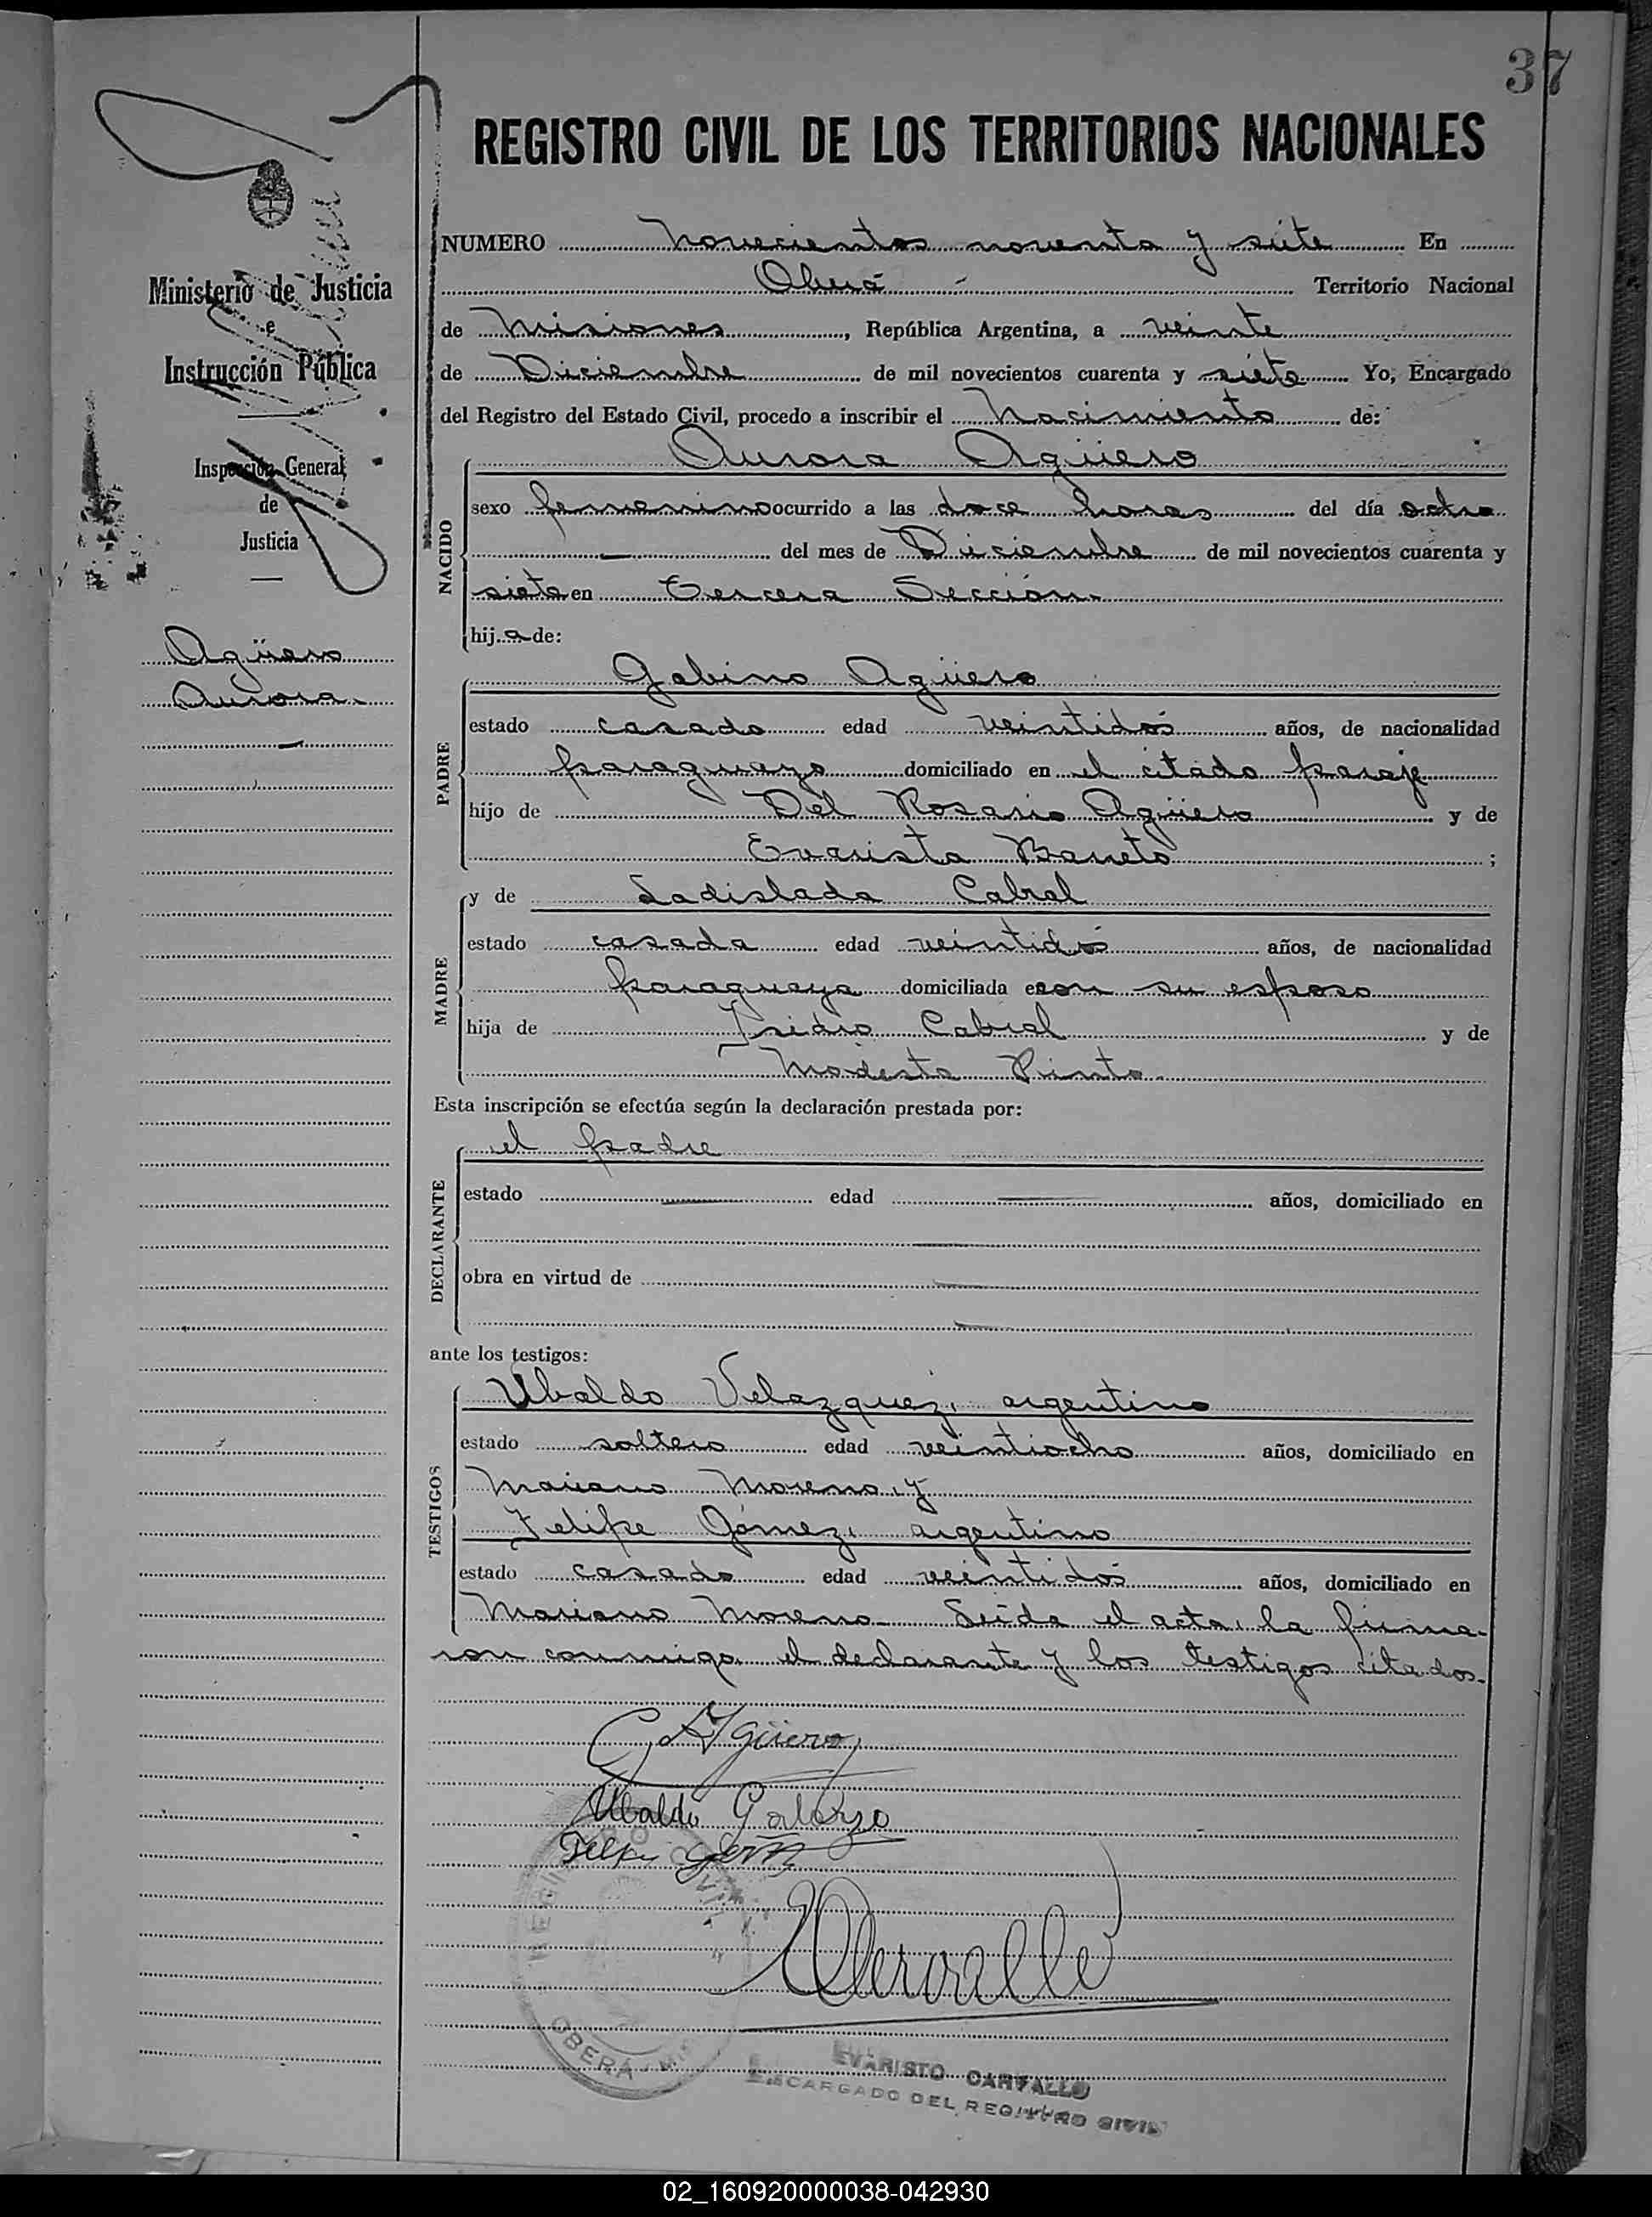 37
REGISTRO CIVIL DE LOS TERRITORIOS NACIONALES
Ministerio de Justicia
e
Instrucción Pública
Inspección General
de
Justicia
Agüero
Aurora
NUMERO novecientos noventa y siete En
Oberá Territorio Nacional
de Misiones, República Argentina, a veinte
de Diciembre de mil novecientos cuarenta y siete Yo, Encargado
del Registro del Estado Civil, procedo a inscribir el Nacimiento de:
NACIDO
Aurora Agüero
sexo femenino ocurrido a las doce horas del día ocho
del mes de Diciembre de mil novecientos cuarenta y
siete en Tercera Sección.
hija de:
PADRE
Gabino Agüero
estado casado edad veintidós años, de nacionalidad
paraguayo domiciliado en el citado paraje
hijo de Del Rosario Agüero y de
Evarista Barreto;
MADRE
y de Ladislada Cabral
estado casada edad veintidós años, de nacionalidad
paraguaya domiciliada econ su esposo
hija de Isidro Cabral y de
Modesta Pinto.
Esta inscripción se efectúa según la declaración prestada por:
DECLARANTE
el padre
estado edad años, domiciliado en
obra en virtud de
ante los testigos:
TESTIGOS
Ubaldo Velazquez, argentino
estado soltero edad veintiocho años, domiciliado en
Mariano Moreno, y
Felipe Gómez, argentino
estado casado edad veintidós años, domiciliado en
Mariano Moreno. Leída el acta, la firma-
ron conmigo el declarante y los testigos citados.
G. Agüero
Ubaldo Galarza
OBERÁ
EVARISTO CARVALLO
ENCARGADO DEL REGISTRO CIVIL
02_160920000038-042930